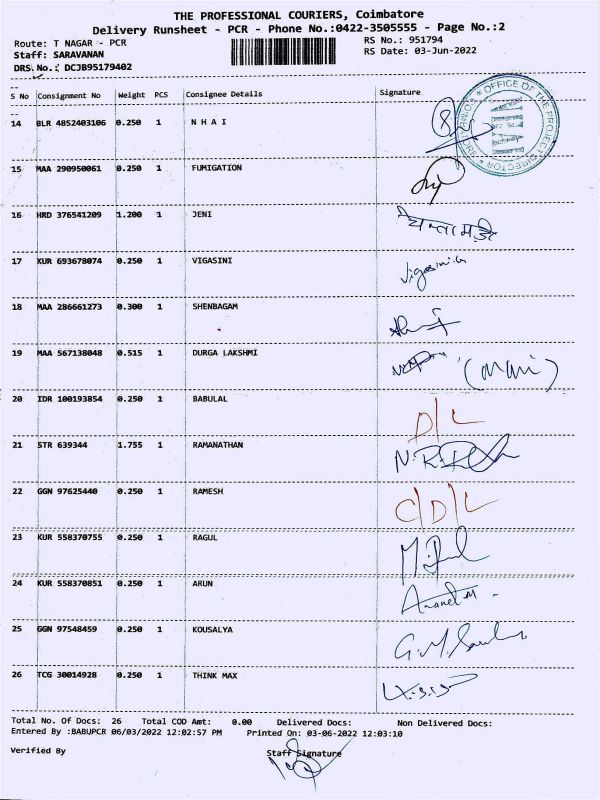 THE PROFESSIONAL COURIERS, Coimbatore
Delivery Runsheet - PCR - Phone No.:0422-3505555 - Page No.:2
Route: T NAGAR - PCR RS No.: 951794
Staff: SARAVANAN RS Date: 03-Jun-2022
DRS No.: DCJB95179402
S No Consignment No Weight PCS Consignee Details Signature
14 BLR 4852403106 0.250 1 N H A I
OFFICE OF THE PROJECT DIRECTOR
15 MAA 290950061 0.250 1 FUMIGATION
16 HRD 376541209 1.200 1 JENI
17 KUR 693678074 0.250 1 VIGASINI Vigasini.G
18 MAA 286661273 0.300 1 SHENBAGAM
19 MAA 567138048 0.515 1 DURGA LAKSHMI
20 IDR 100193854 0.250 1 BABULAL D/L
21 STR 639344 1.755 1 RAMANATHAN
22 GGN 97625440 0.250 1 RAMESH C/D/L
23 KUR 558370755 0.250 1 RAGUL
24 KUR 558370851 0.250 1 ARUN Anand M
25 GGN 97548459 0.250 1 KOUSALYA
26 TCG 30014928 0.250 1 THINK MAX
Total No. Of Docs: 26 Total COD Amt: 0.00 Delivered Docs: Non Delivered Docs:
Entered By :BABUPCR 06/03/2022 12:02:57 PM Printed On: 03-06-2022 12:03:10
Verified By Staff Signature